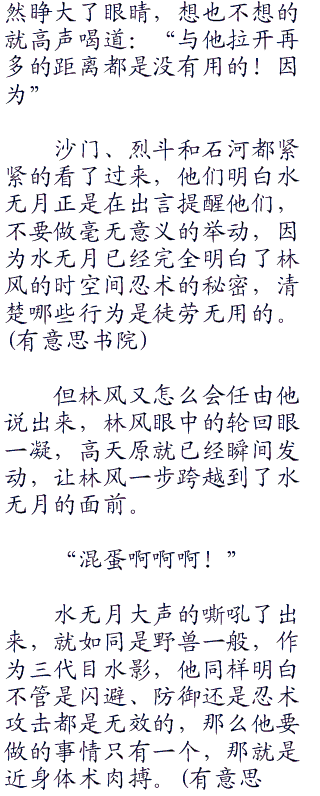 然睁大了眼睛，想也不想的
就高声喝道：“与他拉开再
多的距离都是没有用的！因
为”
沙门、烈斗和石河都紧
紧的看了过来，他们明白水
无月正是在出言提醒他们，
不要做毫无意义的举动，因
为水无月已经完全明白了林
风的时空间忍术的秘密，清
楚哪些行为是徒劳无用的。
(有意思书院)
但林风又怎么会任由他
说出来，林风眼中的轮回眼
一凝，高天原就已经瞬间发
动，让林风一步跨越到了水
无月的面前。
“混蛋啊啊啊！”
水无月大声的嘶吼了出
来，就如同是野兽一般，作
为三代目水影，他同样明白
不管是闪避、防御还是忍术
攻击都是无效的，那么他要
做的事情只有一个，那就是
近身体术肉搏。(有意思